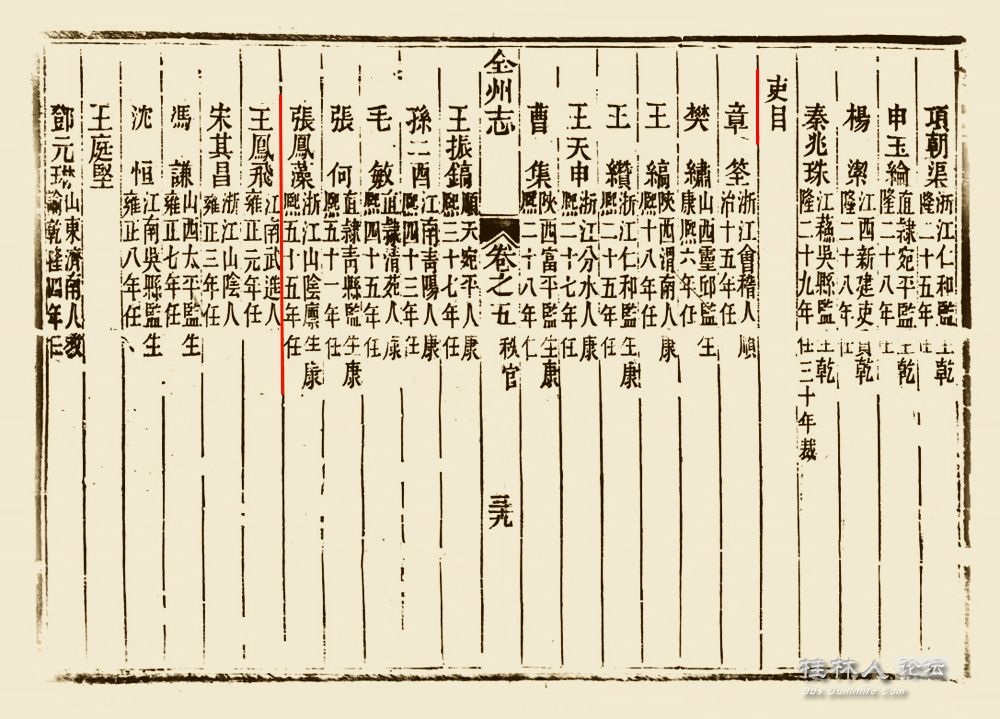 項朝渠 浙江仁和監生乾隆二十五年任
申玉綸 直隸宛平監生乾隆二十八年任
楊 江西新建吏員乾隆二十八年任
秦兆珠 江蘇吳縣監生乾隆二十九年任三十年裁
吏目
章筌 浙江會稽人順治十五年任
樊繡 山西靈邱監生康熙六年任
王縞 陝西渭南人康熙十八年任
王纘 浙江仁和監生康熙二十五年任
王天申 浙江分水人康熙二十七年任
曹集 陝西富平監生康熙二十八年任
全州志 卷之五 秩官 三九
王振鎬 順天宛平人康熙三十七年任
孫二酉 江南青陽人康熙四十三年任
毛敏 直隸清苑人康熙四十五年任
張何 直隸青縣監生康熙五十一年任
張鳳藻 浙江山陰廩生康熙五十五年任
王鳳飛 江南武進人雍正元年任
宋其昌 浙江山陰人雍正三年任
馮謙 山西太平監生雍正七年任
沈恒 江南吳縣監生雍正八年任
王庭堅
鄧元 山東濟南人教諭乾隆四年任
桂林人论坛
bbs.Guilinlife.Com